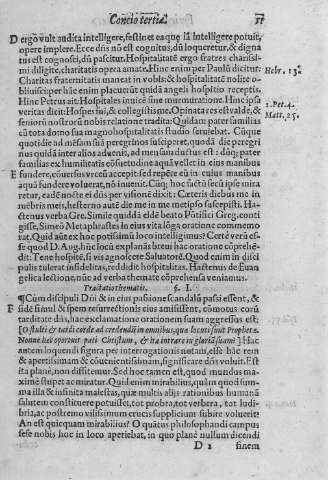 Concio tertia. 51
D ergo vult audita intelligere, festinet ea quę iā intelligere potuit,
opere implere. Ecce dn̄s nō est cognitus, dū loqueretur, & digna
tus est cognosci, dū pascitur. Hospitalitatē ergo fratres charissi-
mi diligite, charitatis opera amate. Hinc enim per Paulū dicitur:
Charitas fraternitatis maneat in vobis: & hospitalitatē nolite o-
blivisci: per hāc enim placuerūt quidā angelis hospitio receptis.
Hinc Petrus ait: Hospitales invicē sine murmuratione. Hinc ipsa
veritas dicit: Hospes fui, & collegistis me. Opinata res est valde, &
seniorū nostrorū nobis relatione tradita: Quidam pater familias
cū tota domo sua magno hospitalitatis studio serviebat. Cūque
quotidie ad mēsam suā peregrinos susciperet, quodā die peregri
nus quidā inter alios advenit, ad mensam ductus est: dūq; pater
familias ex humilitatis cōsuetudine aquā vellet in eius manibus
E fundere, cōversus vrceū accepit: sed repēte eū in cuius manibus
aquā fundere voluerat, nō invenit. Cūq; hoc factū secū ipse mira
retur, eadē nocte ei dn̄s per visionē dixit: Cæteris diebus me in
mēbris meis, hesterno autē die me in me metipso suscepisti. Ha-
ctenus verba Gre. Simile quiddā eidē beato Pōtifici Greg. conti
gisse, Simeō Metaphrastes in eius vita lōga oratione commemo
rat. Quid aūt ex hoc possimus loco intelligimus? Certè verū es-
se quod D. Aug. hūc locū explanās brevi hac oratione cōprehē-
dit: Tene hospitē, si vis agnoscere Salvatorē. Quod enim in disci
pulis tulerat infidelitas, reddidit hospitalitas. Hactenus de Euan
gelica lectione, nūc ad verba thematis cōprehensa veniamus.
Tractatio thematis. §. I.
¶ Cùm discipuli Dn̄i & in eius passione scandalū passi essent, &
F fidē simul & spem resurrectionis eius amisissent, cōmotus corū
tarditate dn̄s, hac exclamatione orationem suam aggressus est:
[O stulti & tardi corde ad credendū in omnibus, quæ locuti sunt Prophetæ.
Nonne hæc oportuit pati Christum, & ita intrare in gloriā suam?] Hac
antem loquendi figura per interrogationis notam, eiusque hāc rem
& apertissimam & cōvenientissimam, significare dn̄s voluit. Est
ita planè, non diffitemur. Sed hoc tamen est, quod mundus ma-
ximè stupet ac miratur. Quid enim mirabilius, quàm quod sum
ma illa & infinita maiestas, quæ multis alijs rationibus humanā
salutem constituere potuisset, tot probra, tot verbera, tot ludi-
bria, ac postremo vilissimum crucis supplicium subire voluerit?
An est quicquam mirabilius? O quātus philosophandi campus
sese nobis hoc in loco aperiebat, in quo planè nullum dicendi
D 2 finem
Hebr. 13.
1. Pet. 4.
Matt. 25.